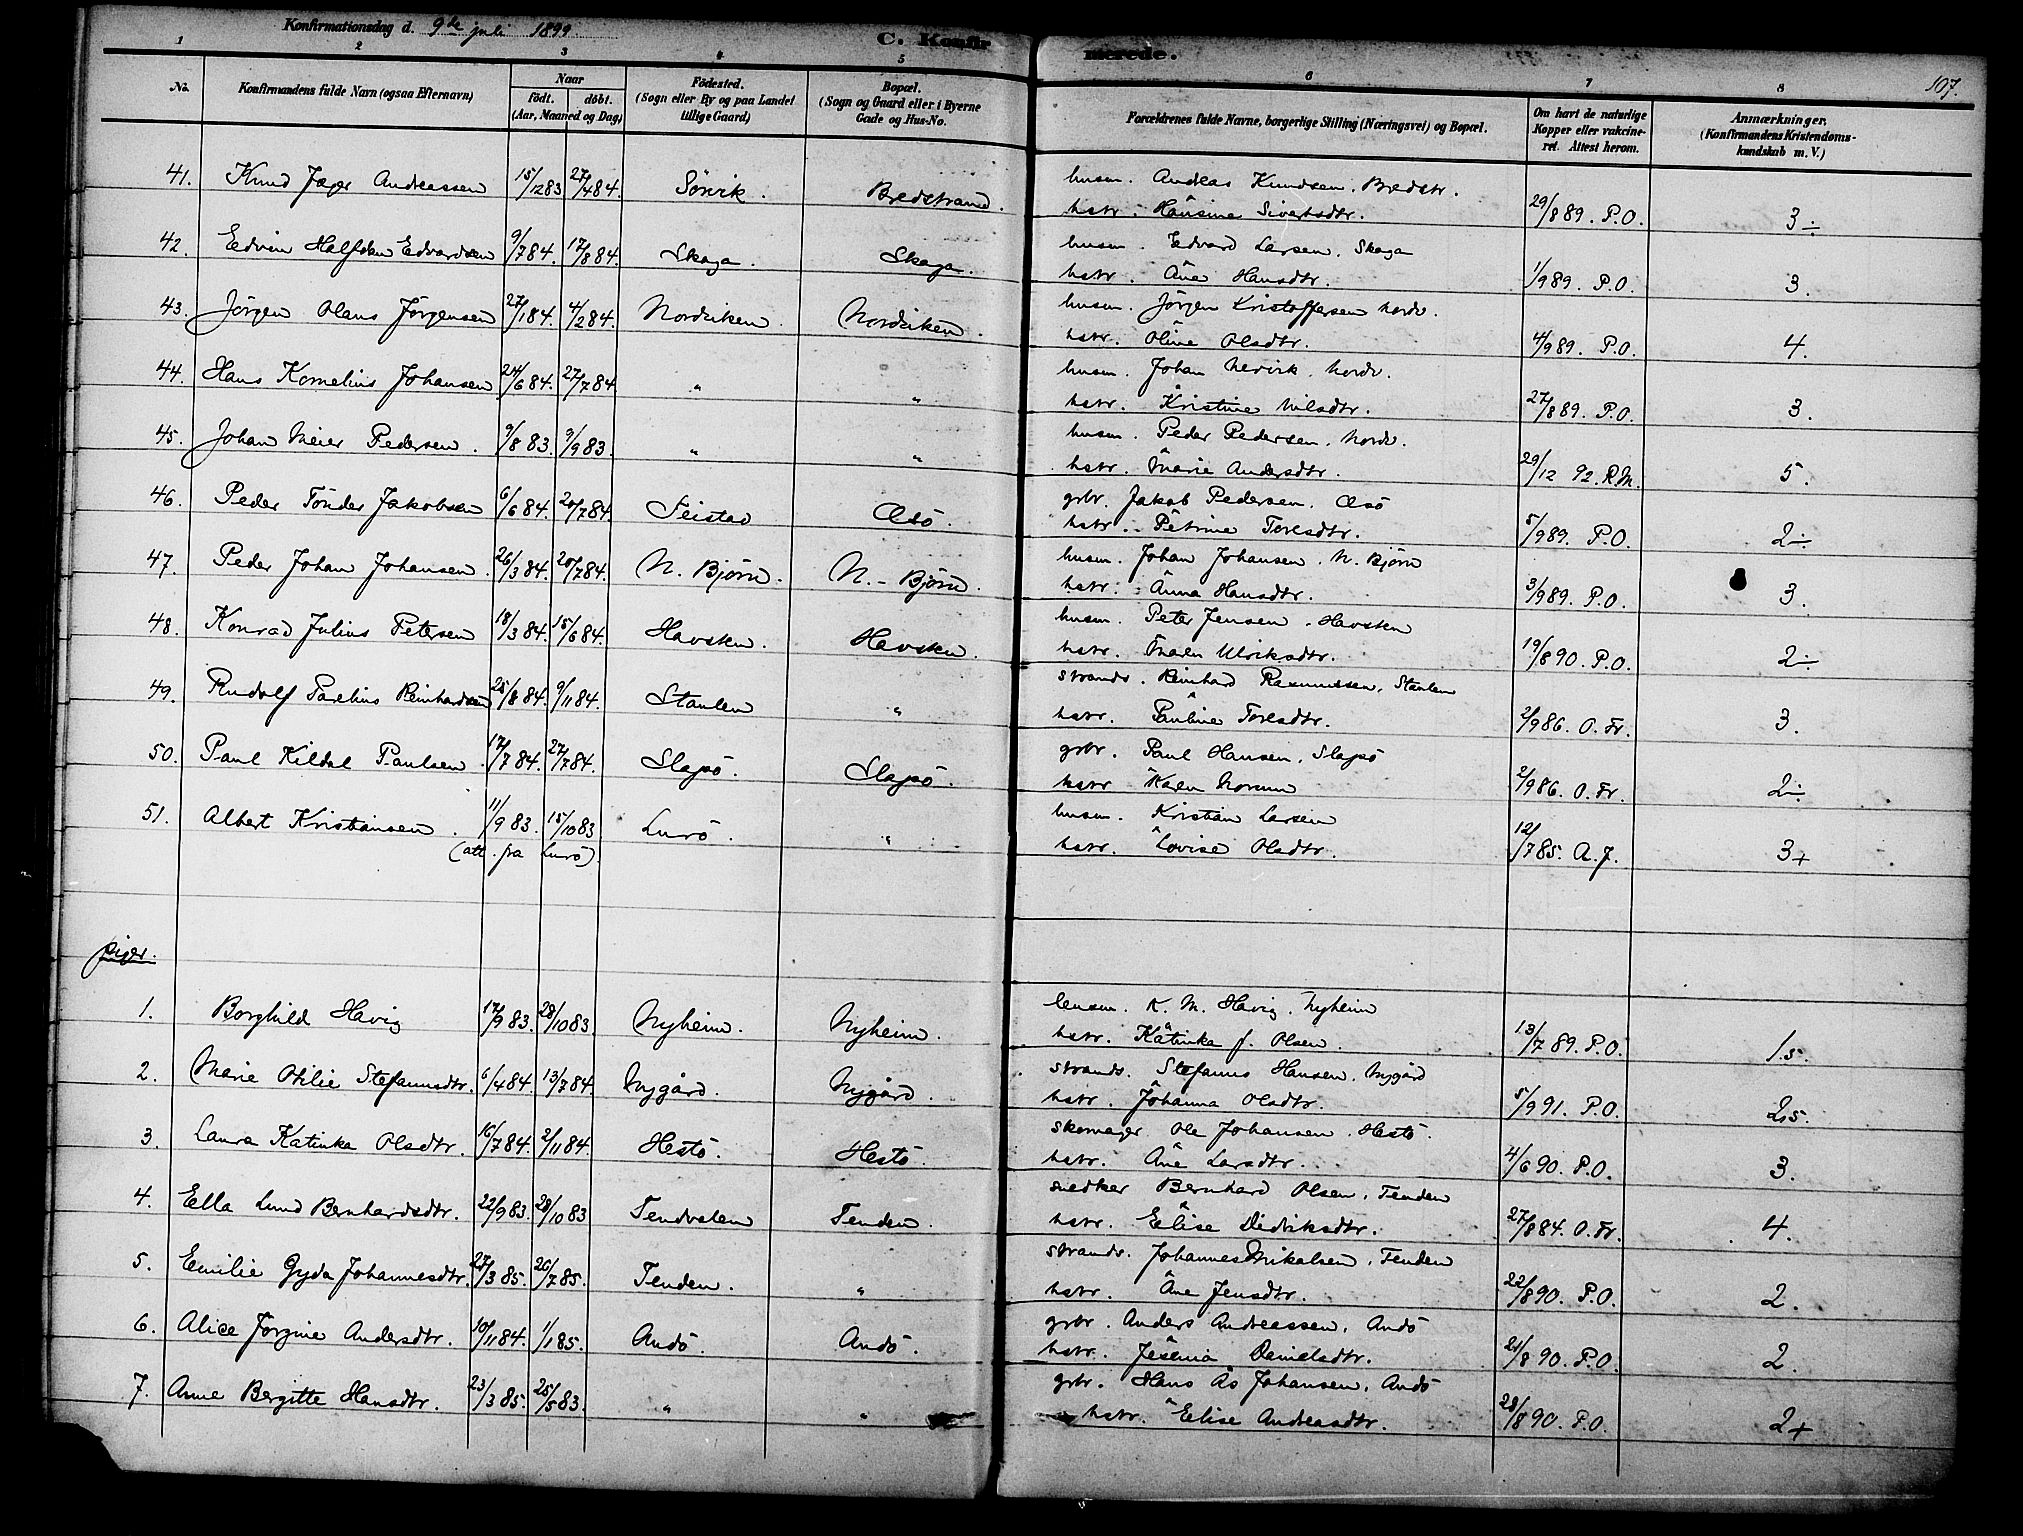 Konfirmationsdag d. 9de juli 1899.
C. Konfirmerede.
107.
1 2 3 4 5 6 7 8
No. Konfirmandens fulde Navn (ogsaa Efternavn) Naar født. døbt. (Aar, Maaned og Dag) Födested. (Sogn eller By og paa Landet tillige Gaard) Bopæl. (Sogn og Gaard eller i Byerne Gade og Hus-No. Forældrenes fulde Navne, borgerlige Stilling (Næringsvei) og Bopæl. Om havt de naturlige Kopper eller vakcineret. Attest herom. Anmærkninger. (Konfirmandens Kristendomskundskab m. V.)
41. Knud Jæger Andreassen 15/12 83 27/4 84. Sörvik. Bredstrand. husm. Andreas Knudsen. Bredstr.
hstr. Hansine Sivertsdtr. 29/8 89. P.O. 3÷
42. Edvin Halfdan Edvardsen 9/7 84. 17/8 84. Skaga. Skaga. husm. Edvard Larsen. Skaga
hstr. Ane Hansdtr. 1/9 89. P.O. 3.
43. Jörgen Olaus Jörgensen 27/1 84. 4/2 84. Nordviken. Nordviken. husm. Jörgen Kristoffersen Nordv.
hstr. Oline Olsdtr. 4/9 89. P.O. 4.
44. Hans Kornelius Johansen 24/6 84. 27/7 84. " " husm. Johan Nervik. Nordv.
hstr. Kristine Nilsdtr. 27/8 89. P.O. 3.
45. Johan Meier Pedersen. 9/8 83. 9/9 83. " " husm. Peder Pedersen. Nordv.
hstr. Marie Andersdtr. 29/12 92. R.M. 5.
46. Peder Tönder Jakobsen 6/6 84. 20/7 84. Seistad Œsö. grbr. Jakob Pedersen. Œsö
hstr. Petrine Toresdtr. 5/9 89. P.O. 2÷
47. Peder Johan Johansen. 26/3 84. 20/7 84. N. Bjørn. N.-Bjørn. husm. Johan Johansen. N. Bjørn
hstr. Anna Hansdtr. 3/9 89. P.O. 3.
48. Konrad Julius Petersen 18/3 84. 15/6 84. Havsken. Havsken. husm. Peter Jensen. Havsken
hstr. Maren Ulriksdtr. 19/8 90. P.O. 2÷
49. Rudolf Parelius Reinhardsen 25/8 84. 9/11 84. Staulen " strands. Reinhard Rasmussen. Staulen
hstr. Pauline Toresdtr. 2/9 86. O. Fr. 3.
50. Paul Kildal Paulsen. 17/7 84. 27/7 84. Slapö. Slapö. grbr. Paul Hansen. Slapö
hstr Karen Norum 2/9 86. O. Fr. 2÷
51. Albert Kristiansen. 11/9 83. 15/10 83 Lurö. " husm. Kristian Larsen
(att. fra Lurö). hstr. Lovise Olsdtr. 12/7 85. A.J. 3+
piger.
1. Borghild Havig 17/9 83. 28/10 83. Nyheim. Nyheim. lensm. K. M. Havig. Nyheim
hstr. Katinka f. Olsen. 13/7 89. P.O. 1.5.
2. Marie Otilie Stefanusdtr. 6/4 84. 13/7 84. Nygård. Nygård. strands. Stefanus Hansen. Nygård
hstr. Johanna Olsdtr. 5/9 91. P.O. 2,5.
3. Laura Katinka Olsdtr. 16/7 84. 2/11 84. Hestö. Hestö. skomager Ole Johansen. Hestö.
hstr. Ane Larsdtr. 4/6 90. P.O. 3.
4. Ella Lund Bernhardsdtr. 22/9 83. 28/10 83 Tendvalen Tenden. snedker Bernhard Olsen. Tenden
hstr. Elise Didriksdtr. 27/8 84. O. Fr. 4.
5. Emilie Gyda Johannesdtr. 27/3 85. 26/7 85. Tenden. " strands. Johannes Mikalsen. Tenden
hstr. Ane Jensdtr. 22/8 90. P.O. 2.
6. Alice Jörgine Andersdtr. 10/11 84. 1/1 85. Andö. Andö. grbr. Anders Andreassen. Andö
hstr. Jesenia Danielsdtr. 21/8 90. P.O. 2.
7. Anne Bergitte Hansdtr. 23/3 85. 25/5 83. " " grbr. Hans Ås Johansen. Andö
hstr. Elise Andreasdtr. 28/8 90. P.O. 2+